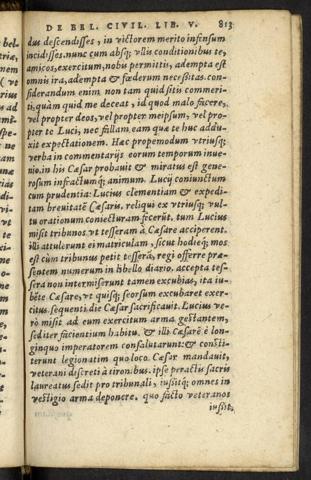 DE BEL. CIVIL. LIB. V. 813
dus descendisses, in victorem merito infinsum
incidisses. nunc cum absq; vllis conditionibus te,
amicos, exercitum, nobis permittis, adempta est
omnis ira, adempta & fœderum necessitas. con-
siderandum enim non tam quid sitis commeri-
ti, quàm quid me deceat, id quod malo facere,
vel propter deos, vel propter meipsum, vel pro-
pter te Luci, nec fallam eam quæ te huc addu-
xit expectationem. Hæc propemodum vtriusq;
verba in commentarijs eorum temporum inue-
nio. in his Cæsar probauit & miratus est gene-
rosum infractumq; animum. Lucij coniunctum
cum prudentia: Lucius clementiam & expedi-
tam breuitatē Cæsaris. reliqui ex vtriusq; vul-
tu orationum coniecturam fecerūt. tum Lucius
misit tribunos vt tesseram à Cæsare acciperent.
illi attulerunt ei matriculam, sicut hodieq; mos
est cùm tribunus petit tesserā, regi offerre præ-
sentem numerum in libello diario. accepta tes-
sera non intermiserunt tamen excubias, ita iu-
bēte Cæsare, vt quisq; seorsum excubaret exer-
citus. sequenti die Cæsar sacrificauit. Lucius ve-
rò misit ad eum exercitum arma gestantem,
sed iter facientium habitu. & illi Cæsarē è lon-
ginquo imperatorem consalutarunt: & consti-
terunt legionatim quo loco. Cæsar mandauit,
veterani discreti à tironibus. ipse peractis sacris
laureatus sedit pro tribunali, iussitq; omnes in
vestigio arma deponere. quo facto veteranos
iussit,